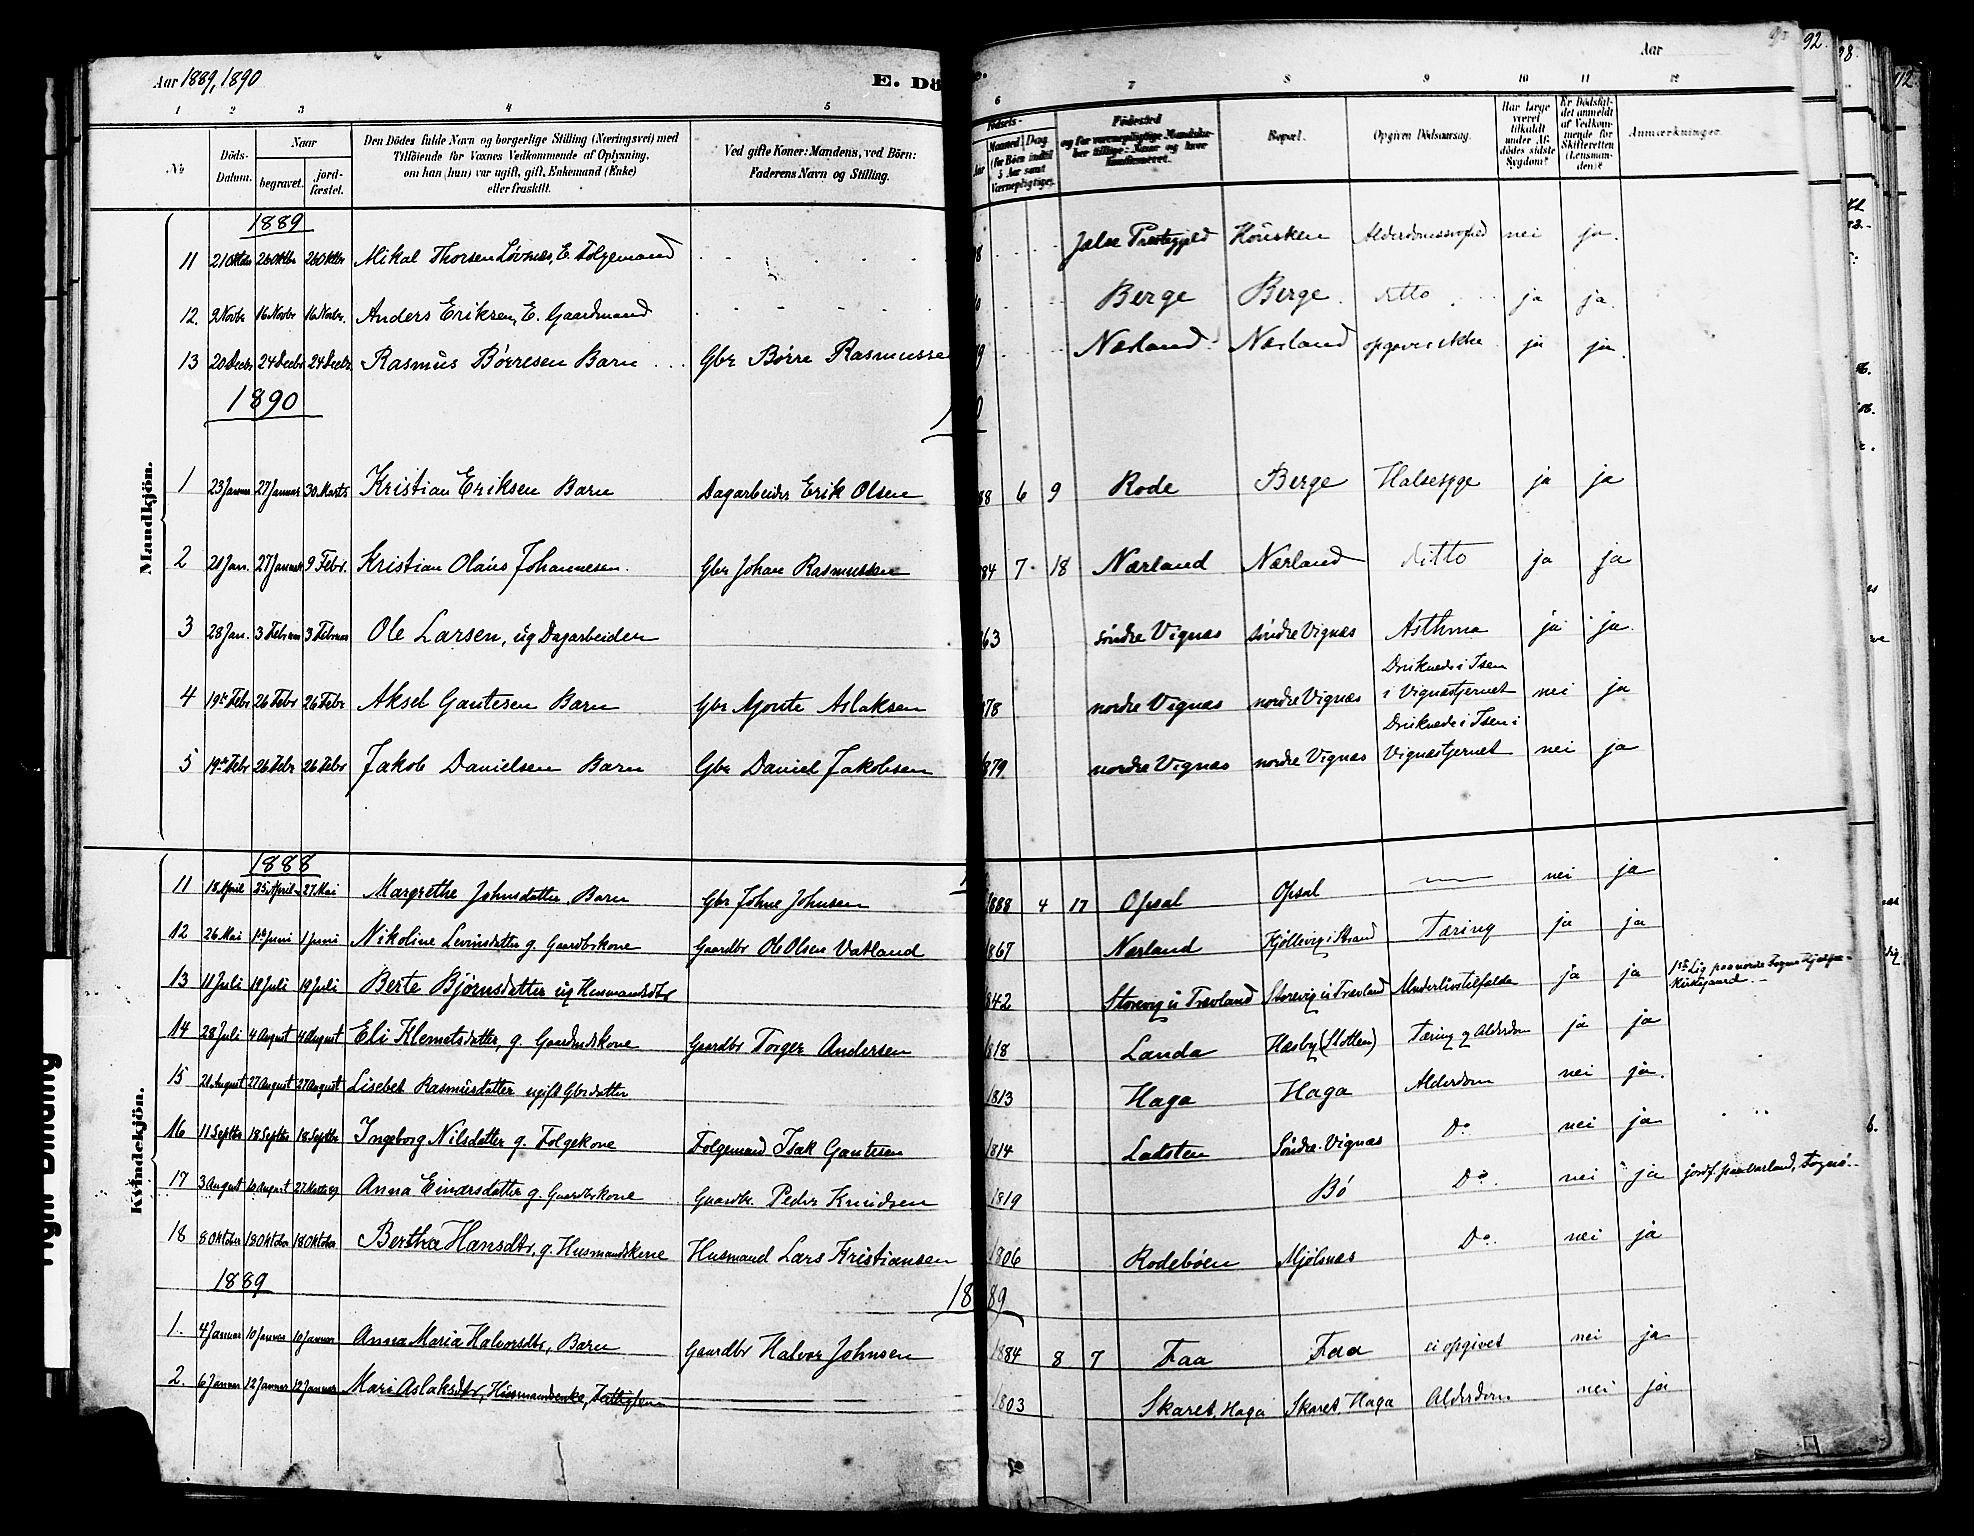 Aar 1889, 1890
E. Dö
Aar
92.
1 2 3 4 5 6 7 8 9 10 11 12
№
Döds-Datum.
Naar
begravet.
jord-fæstet.
Den Dödes fulde Navn og borgerlige Stilling (Næringsvei) med
Tilföiende for Voxnes Vedkommende af Oplysning,
om han (hun) var ugift, gift, Enkemand (Enke)
eller fraskilt.
Ved gifte Koner: Mandens, ved Börn:
Faderens Navn og Stilling.
Födsels-
Maaned Dag
(for Börn indtil
5 Aar samt
Værnepligtige).
Födested
og for værnepligtige Mandskaber tillige: Naar og hvor
konfirmeret.
Bopæl.
Opgiven Dödsaarsag.
Har Læge
været
tilkaldt
under Afdödes sidste
Sygdom?
Er Dödsfaldet anmeldt
af Vedkommende for
Skifteretten
(Lensmanden)?
Anmærkninger.
Mandkjön.
1889
11 21 Oktbr 26 Oktbr 26 Oktbr Mikal Thorsen Løvnæs, E. Folgemand Jelse Præstegjeld Housken Alderdomssvaghed nei ja.
12. 9 Novbr 16 Novbr 16 Novbr. Anders Eriksen, E. Gaardmand Berge Berge ditto ja ja.
13 20 Decbr 24 Decbr 24 Decbr. Rasmus Börresen Barn Gbr Börre Rasmusse Nærland Nærland opgives ikke ja ja.
1890
1 23 Januar 27 Januar 30 Marts Kristian Eriksen Barn Dagarbeider Erik Olsen 88 6 9 Rode Berge Halsesyge ja ja
2 21 Jan. 27 Januar 9 Febr. Kristian Olaus Johannesen. Gbr Johan Rasmussen 84 7 18 Nærland Nærland ditto ja ja
3 28 Jan. 3 Februar 3 Februar Ole Larsen, ug Dagarbeider 63 söndre Vignæs söndre Vignæs Asthma ja ja.
4 19de Febr 26 Febr 26 Febr Aksel Gautesen Barn Gbr Gjoute Aslaksen 878 nordre Vignæs nordre Vignæs Druknede i Isen i Vignæstjernet nei ja
5 19de Febr 26 Febr 26 Febr Jakob Danielsen Barn Gbr Daniel Jakobsen 879 nordre Vignæs nordre Vignæs Druknede i Isen i Vignæstjernet nei ja
Kvindekjön.
1888
11 18 April 25 April 27 Mai Margrethe Johnsdatter Barn Gbr Johne Johnsen 1888 4 17 Opsal Opsal nei ja
12 26 Mai 1ste Juni 1 Juni Nikoline Levinsdatter g. Gaardbrkone Gaardbr Ole Olsen Vatland 867 Nærland Kjöllevig i Strand Tæring ja ja
13 11 Juli 19 Juli 19 Juli Berte Björnsdatter ug Husmandsdtr 842 Storevig u Trævland Storevig u Trævland Underlivstilfælde ja ja 1ste Lig paa nordre Fogns Kirkegaard.
14 28 Juli 4 August 4 August Eli Klemetsdatter, g. Gaardmdskone Gaardbr Torger Andersen 1818 Landa Hæsby (Slotten) Tæring og Alderdom ja ja
15 21 August 27 August 27 August Lisebet Rasmusdatter ugift Gbrdatter 1813 Haga Haga Alderdom nei ja.
16 11 Septbr 18 Septbr 18 Septbr Ingeborg Nilsdatter g. Folgekone Folgemand Isak Gautesen 1814 Ladsten Söndre Vignæs Do nei ja
17 3 August 10 August Anna Einarsdatter g. Gaardbrkone Gaardbr. Peder Knudsen 1819 Bö Do. nei ja
18 8 Oktober 18 Oktober 18 Oktober Bertha Hansdtr, g. Husmandskone Husmand Lars Kristiansen 1806 Rodebøen Mjölsnæs Do. nei ja
1889 1889
1. 4 Januar 10 Januar 10 Januar Anna Maria Halvorsdtr, Barn Gaardbr Halvor Johnsen 1884 8 7 Faa Faa ei opgivet nei ja
2. 6 Januar 12 Januar 12 Januar Mari Aslaksdtr, Husmandsenke, Fattiglem 1803 Skaret, Haga Skaret, Haga Alderdom nei ja